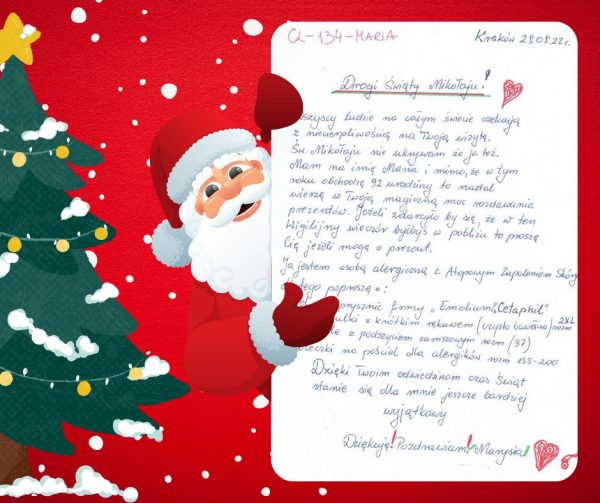 CL-134-MARIA
Kraków 29.09.22r.
Drogi Święty Mikołaju!
wszyscy ludzie na całym świecie czekają
z niecierpliwością na Twoją wizytę.
Św. Mikołaju nie ukrywam że ja też.
Mam na imię Maria i mimo, że w tym
roku obchodzę 92 urodziny to nadal
wierzę w Twoją magiczną moc rozdawania
prezentów. Jeżeli zdarzyło by się, że w ten
Wigilijny wieczór byłbyś w pobliżu to proszę
Cię jeżeli mogę o prezent.
Ja jestem osobą alergiczną z Atopowym Zapaleniem Skóry
poproszę o:
firmy "Emolium", "Cetaphil"
z krótkim rękawem (czysta bawełna) rozm 2XL
z podszyciem zamszowym rozm (37)
na pościel dla alergików rozm 155-200
Dzięki Twoim odwiedzinom czas Świąt
stanie się dla mnie jeszcze bardziej
wyjątkowy
Dziękuję! Pozdrawiam! Marysia!